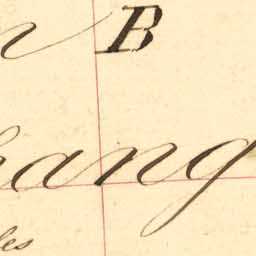 n B
hang
les